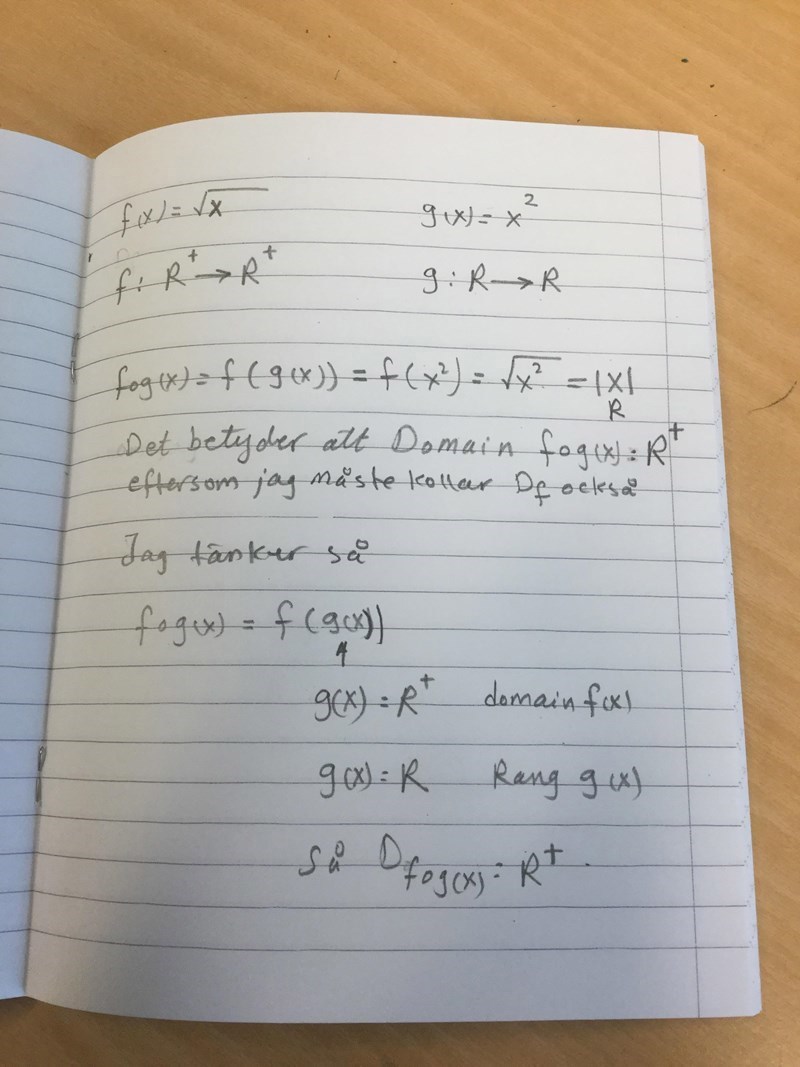 f(x) = √x g(x) = x²
f : R⁺ → R⁺ g : R → R
fog(x) = f(g(x)) = f(x²) = √x² = |x|
R
Det betyder att Domain fog(x) : R⁺
eftersom jag måste kollar Df också
Jag tänker så
fog(x) = f(g(x))
g(x) = R⁺ domain f(x)
g(x) = R Rang g(x)
Så Dfog(x) = R⁺.